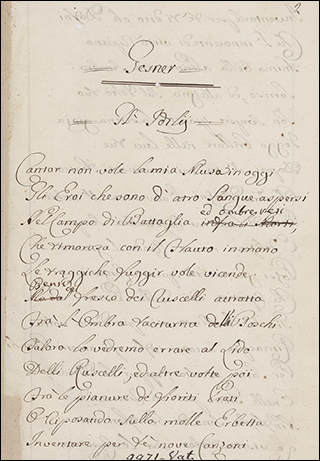 2
Gesner
Gl' Idilij
Cantar non vole la mia Musa in oggi
Gli Eroi che sono d'atro Sangue aspersi
Nel Campo di Battaglia infra li Morti,
ed ombre
Che timorosa con il flauto in mano
Le traggiche fuggir vole vicende.
Bensi
fresco dei Ruscelli auratta
Tra l'Ombra taciturna delli Boschi
Talora lo vedremo errare al Lido
Delli Ruscelli, ed altre volte poi
Tra le pianure de fioriti Prati
O riposando sulla molle Erbetta
Inventare per Te nove Canzoni
9971-Vat.